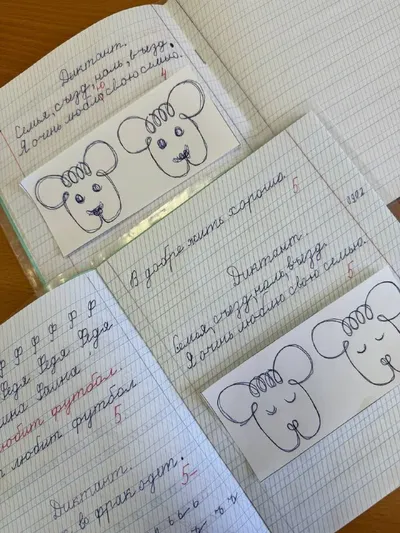 Диктант.
Семья, съезд, ноль, въезд.
Я очень люблю свою семью.
4
В добре жить хорошо.
5
Диктант
Семья, съезд, ноль, въезд.
Я очень люблю свою семью.
5
Ф Ф Ф Ф Ф Ф
Федя Федя Федя
любит футбол.
т любит футбол
5.
Диктант.
в фрак одет.
5-